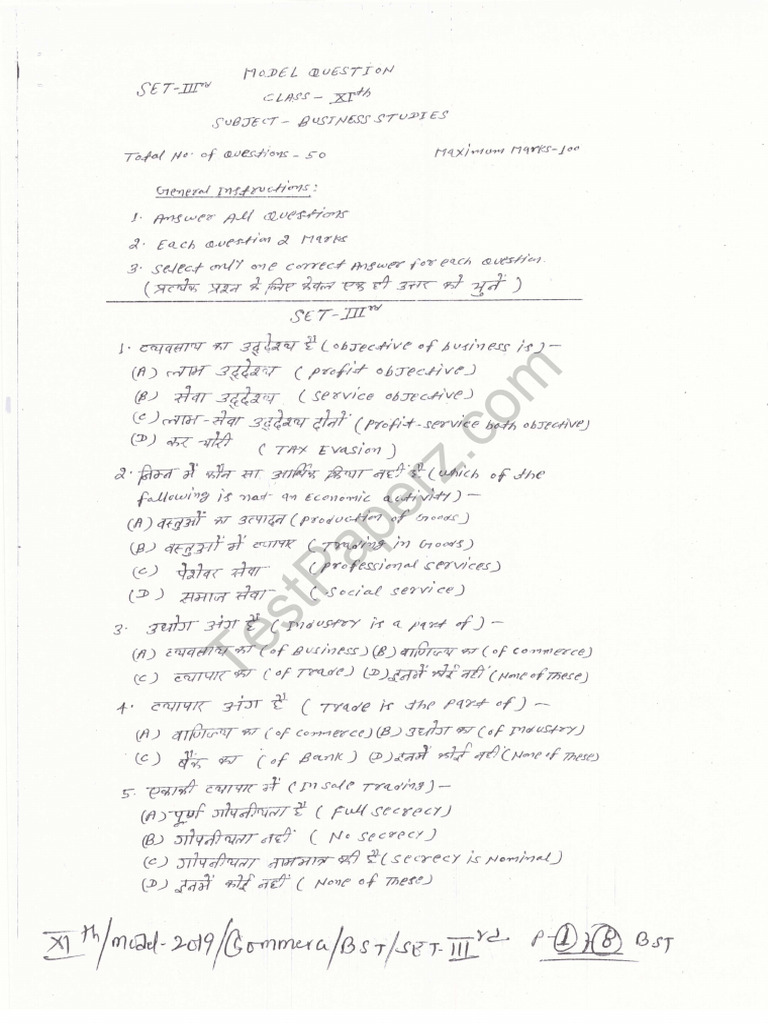 MODEL QUESTION
SET-IIIrd
CLASS- XIth
SUBJECT- BUSINESS STUDIES
Total No. of Questions - 50 Maximum Marks-100
General Instructions:
1. Answer All Questions
2. Each Question 2 Marks
3. Select only one correct Answer for each Question.
(प्रत्येक प्रश्न के लिए केवल एक ही उत्तर को चुनें)
SET-IIIrd
1. व्यवसाय का उद्देश्य है (objective of business is) —
(A) लाभ उद्देश्य (Profit objective)
(B) सेवा उद्देश्य (Service objective)
(C) लाभ-सेवा उद्देश्य दोनों (Profit-service both objective)
(D) कर चोरी (TAX Evasion)
2. निम्न में कौन सा आर्थिक क्रिया नहीं है (which of the
following is not an Economic activity) —
(A) वस्तुओं का उत्पादन (Production of Goods)
(B) वस्तुओं में व्यापार (Trading in Goods)
(C) पेशेवर सेवा (Professional services)
(D) समाज सेवा (Social service)
3. उद्योग अंग है (Industry is a part of) —
(A) व्यवसाय का (of Business) (B) वाणिज्य का (of commerce)
(C) व्यापार का (of Trade) (D) इनमें कोई नहीं (None of These)
4. व्यापार अंग है (Trade is the part of) —
(A) वाणिज्य का (of commerce) (B) उद्योग का (of Industry)
(C) बैंक का (of Bank) (D) इनमें कोई नहीं (None of These)
5. एकाकी व्यापार में (In sole Trading) —
(A) पूर्ण गोपनीयता है (Full secrecy)
(B) गोपनीयता नहीं (No secrecy)
(C) गोपनीयता नाममात्र की है (secrecy is Nominal)
(D) इनमें कोई नहीं (None of These)
XIth/Model-2019/Commerce/BST/SET-IIIrd P-1 8 BST
TestPaperz.com